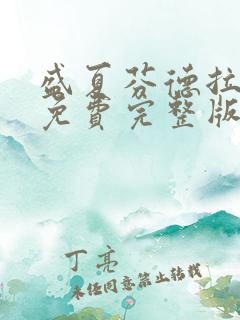 盛夏芬德拉
免費完整版
丁亮
未经同意禁止转载